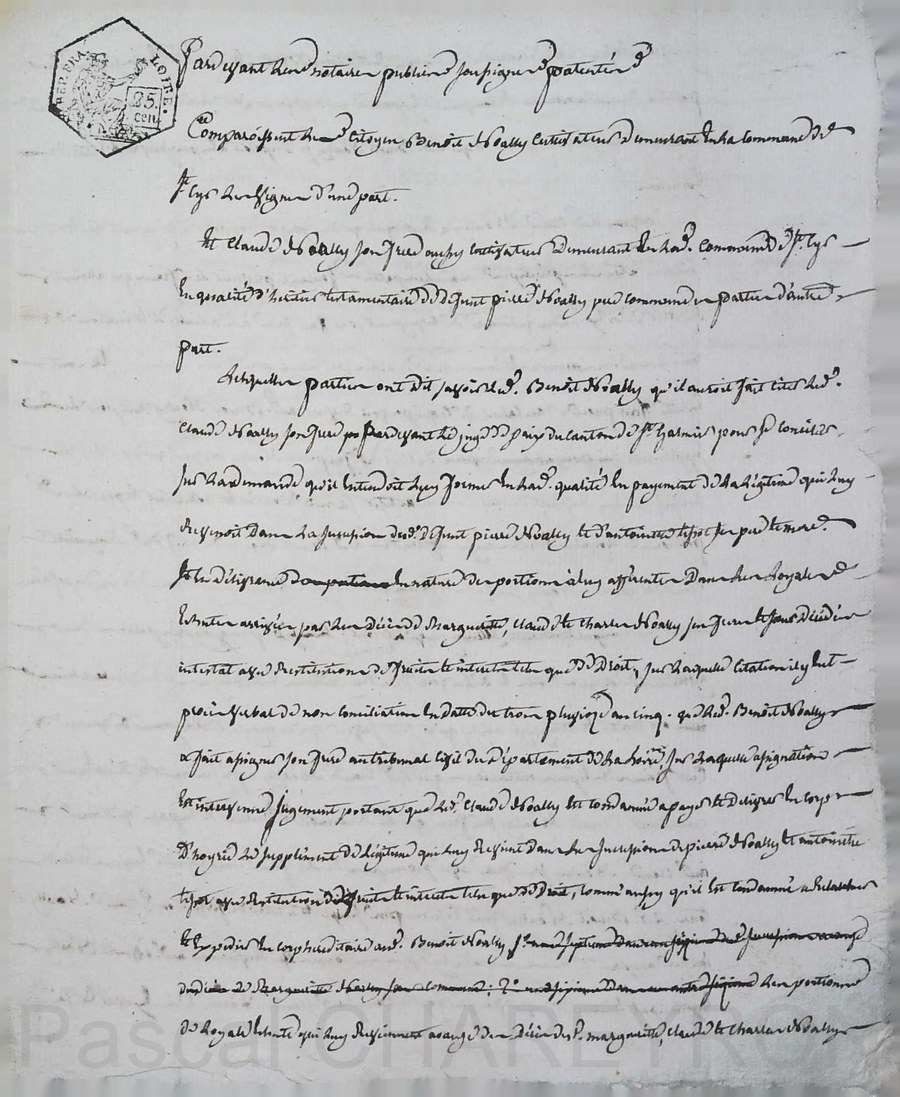 REP. FRA. LOIRE.
25.
cen
Pardevant les notaires publics soussignés patentés
Comparoissent le Cit Citoyen Benoît Noally cultivateur demeurant en la commune de
St Cyr le soussigné d'une part.
Et Claude Noally son frère aussy cultivateur demeurant en lad. commune de St Cyr
En qualité d'héritier testamentaire de defunt pierre Noally père commun des parties d'autre
part.
Lesquelles parties ont dit savoir led. Benoît Noally qu'il auroit fait citer led.
Claude Noally son frère pardevant le juge de paix du canton de St pour se concilier
sur la demande qu'il entendoit luy former en lad. qualité en payement de la légitime qui luy
revenoit dans la succession dud. defunt pierre Noally et d'antoinette père et mère
Et en délivrance en nature des portions à luy afférentes dans les
échutes arrivées par les décès de Marguerite, Claude et Charles Noally ses frères et sœur décédés
intestat avec restitution de fruits et intérêts tels que de droit, sur laquelle citation il y eut
procès verbal de non conciliation en datte du trois pluviôse an cinq. que led. Benoît Noally
a fait assigner son frère au tribunal civil du département de la Loire, sur laquelle assignation
est intervenu jugement portant que led. Claude Noally est condamné a payer et délivrer en corps
d'hoyrie le supplément de légitime qui luy revient dans les successions de pierre Noally et antoinette
avec restitution de fruits et intérêts tels que de droit, comme aussy qu'il est condamné a relâcher
et expédier en corps héréditaire aud. Benoît Noally
de Marguerite Noally les portions
de et échute qui luy reviennent a cause des décès desd. marguerite, claude et charles Noally
Pascal CHAREYRON